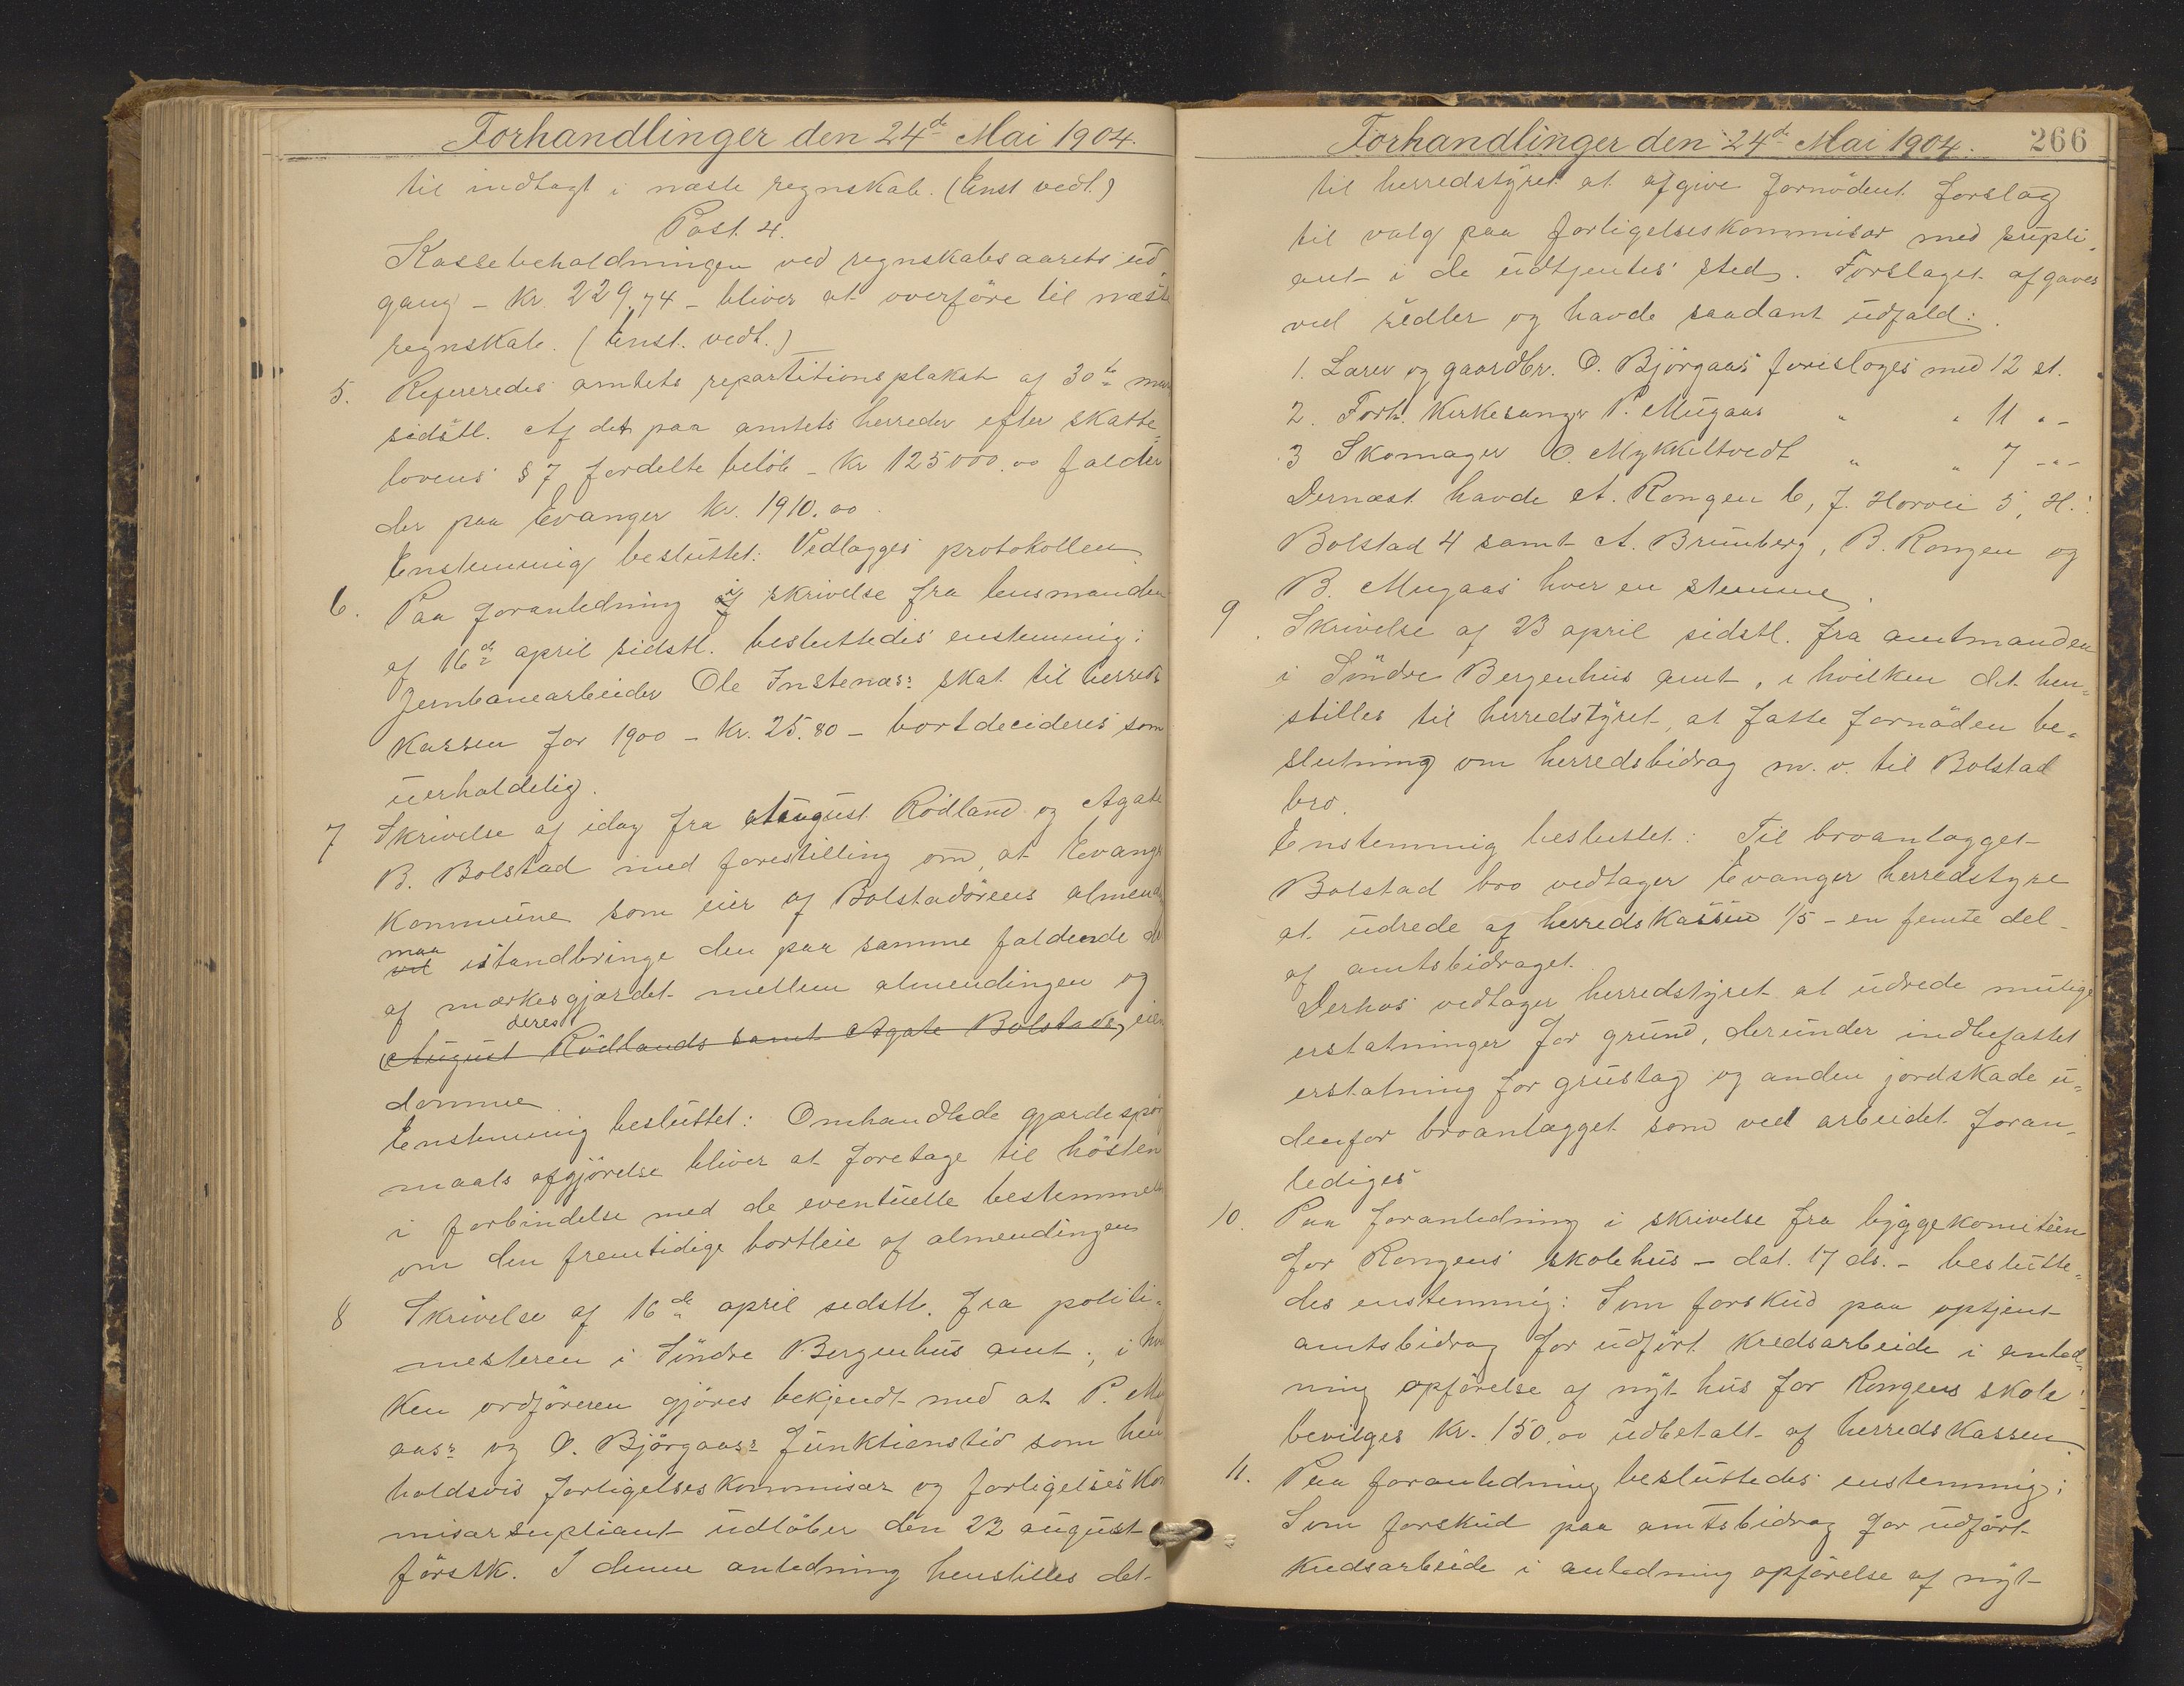 Forhandlinger den 24de Mai 1904.
til indtagt i næste regnskab. (Enst vedt.)
Post 4.
Kassebeholdningen ved regnskabsaarets ud
gang – Kr. 229.74 – bliver at overföre til næste
regnskab. (Enst. vedt.)
5. Refereredes amtets repartitionsplakat af 30te mars
sidstl. Af det paa amtets herreder efter skatte-
lovens § 7 fordelte belöb – Kr 125000.00 falder
der paa Evanger Kr. 1910.00.
Enstemmig besluttet: Vedlægges protokollen
6. Paa foranledning i skrivelse fra lensmanden
af 16de april sidstl. besluttedes enstemmig:
Jernbanearbeider Ole Instenæs: skat til herreds
kassen for 1900 – Kr. 25.80 – bortdecideres som
uerholdelig.
7 Skrivelse af idag fra August Rödland og Agate
B. Bolstad med forestilling om, at Evanger
kommune som eier af Bolstadörens almen
maa
vil istandbringe den paa samme faldende del
af mærkesgjærdet mellem almendingen og
deres
August Rödlands samt Agate Bolstads, eien
domme
Enstemmig besluttet: Omhandlede gjærdespör
maals afgjörelse bliver at foretage til hösten
i forbindelse med de eventuelle bestemmelser
om den fremtidige bortleie af almendingen
8 Skrivelse af 16de april sidstl. fra politi-
mesteren i Söndre Bergenhus amt., i hvil
ken ordföreren gjöres bekjendt med at P. Mug
aas: og O. Björgaas: funktionstid som hen
holdsvis forligelseskommisær og forligelseskom
misærsupliant udlöber den 22 august
förstk. I denne anledning henstilles det
Forhandlinger den 24de Mai 1904. 266
til herredstyret at afgive fornödent forslag
til valg paa forligelseskommisær med supli-
ant i de udtjentes sted. Forslaget afgaves
ved sedler og havde saadant udfald:
1. Lærer og gaardbr. O. Björgaas foresloges med 12 st.
2. Forh. Kirkesanger P. Mugaas " " 11 " –
3 Skomager O. Mykkeltvedt " " 7 – " –
Dernæst havde A. Rongen 6, J. Horvei 5, H.
Bolstad 4 samt A. Brunberg, B. Rongen og
B. Mugaas hver en stemme.
9. Skrivelse af 23 april sidstl. fra amtmanden
i Söndre Bergenhus amt, i hvilken det hen-
stilles til herredstyret, at fatte fornöden be-
slutning om herredsbidrag m. v. til Bolstad
bro.
Enstemmig besluttet: Til broanlægget
Bolstad bro vedtager Evanger herredstyre
at udrede af herredskassen 1/5 – en femte del –
af amtsbidraget.
Derhos vedtager herredstyret at udrede mulige
erstatninger for grund, derunder indbefattet
erstatning for grustag og anden jordskade u-
denfor broanlægget som ved arbeidet foran-
lediges
10. Paa foranledning i skrivelse fra byggekomiteen
for Rongens skolehus – dat. 17 ds. – beslutte-
des enstemmig: Som forskud paa optjent
amtsbidrag for udfört kredsarbeide i anled-
ning opförelse af nyt hus for Rongens skole
bevilges Kr. 150.00 udbetalt af herredskassen.
11. Paa foranledning besluttedes enstemmig:
Som forskud paa amtsbidrag for udfört
kredsarbeide i anledning opförelse af nyt